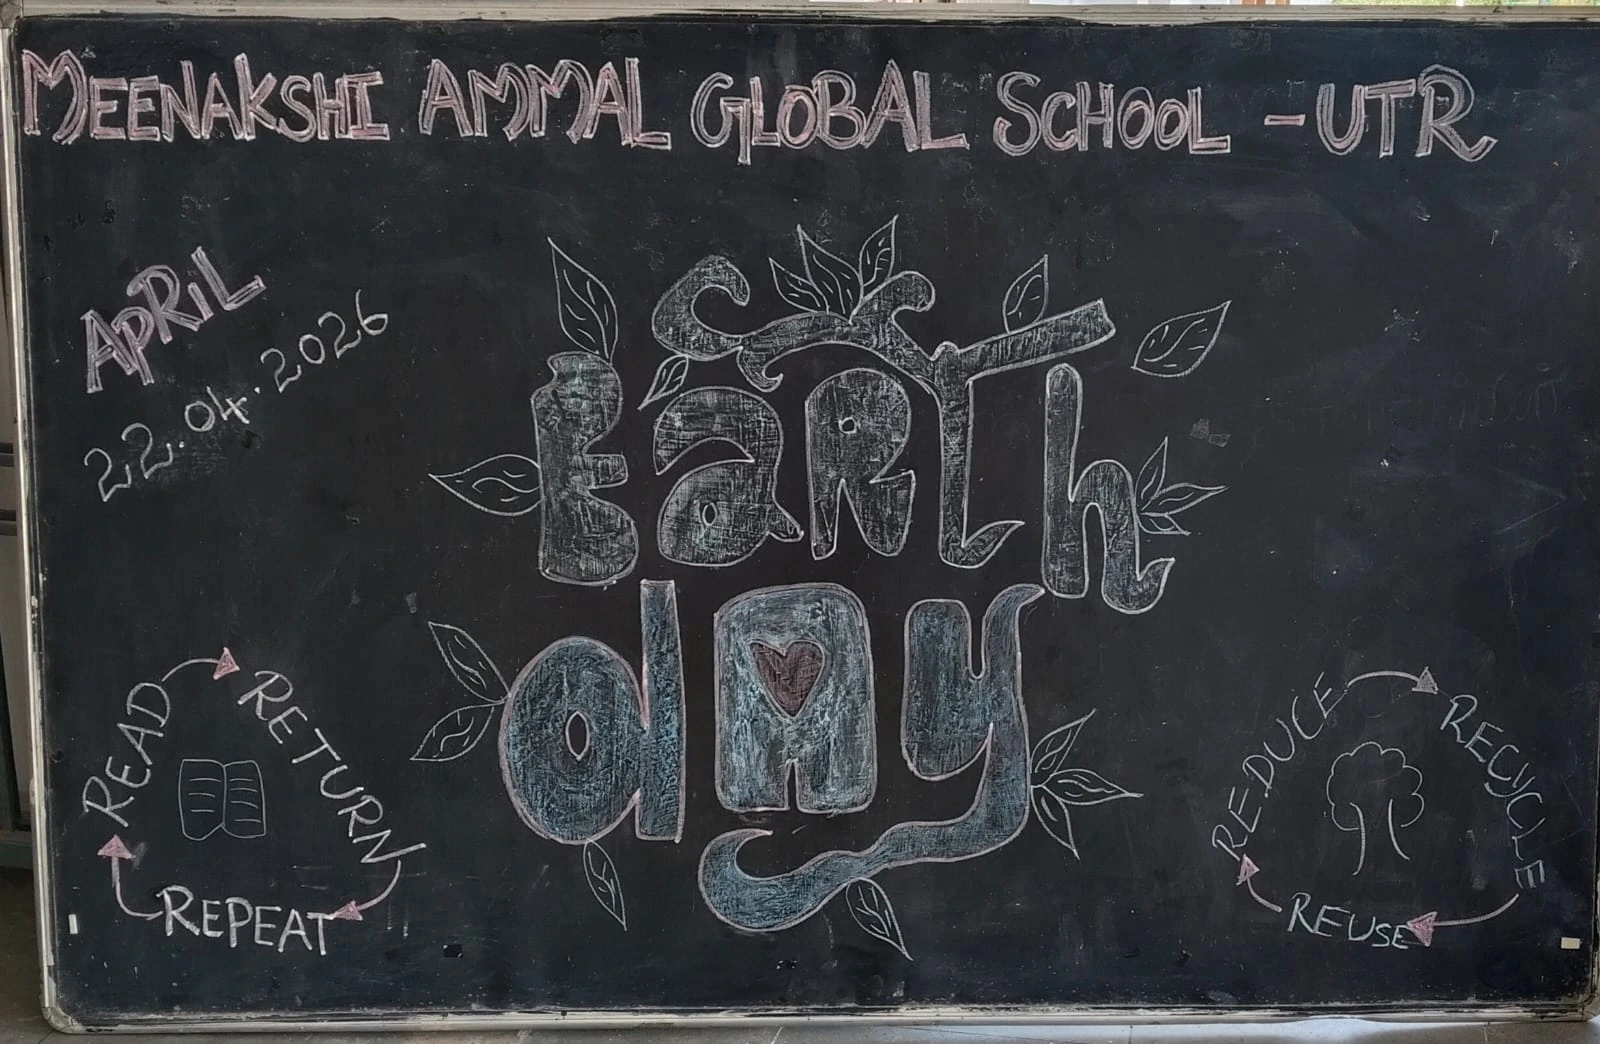 MEENAKSHI AMMAL GLOBAL SCHOOL - UTR
APRiL
22.04.2026
EaRTh
dAy
READ
RETURN
REPEAT
REDUCE
RECYCLE
REUSE